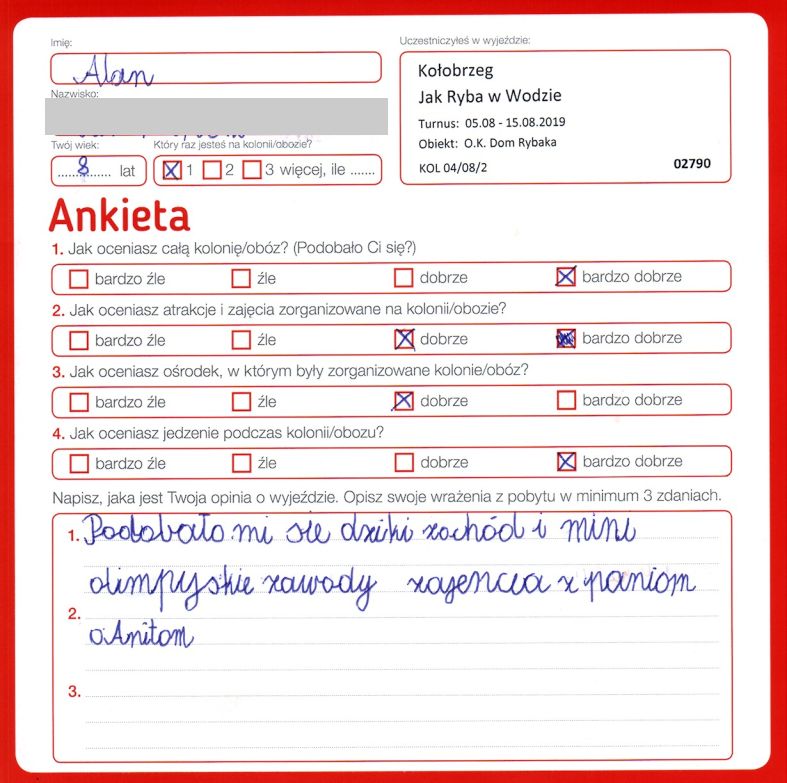 Imię:
Alan
Nazwisko:
Twój wiek:
8 lat
Który raz jesteś na kolonii/obozie?
1 2 3 więcej, ile .......
Uczestniczyłeś w wyjeździe:
Kołobrzeg
Jak Ryba w Wodzie
Turnus: 05.08 - 15.08.2019
Obiekt: O.K. Dom Rybaka
KOL 04/08/2 02790
Ankieta
1. Jak oceniasz całą kolonię/obóz? (Podobało Ci się?)
bardzo źle źle dobrze bardzo dobrze
2. Jak oceniasz atrakcje i zajęcia zorganizowane na kolonii/obozie?
bardzo źle źle dobrze bardzo dobrze
3. Jak oceniasz ośrodek, w którym były zorganizowane kolonie/obóz?
bardzo źle źle dobrze bardzo dobrze
4. Jak oceniasz jedzenie podczas kolonii/obozu?
bardzo źle źle dobrze bardzo dobrze
Napisz, jaka jest Twoja opinia o wyjeździe. Opisz swoje wrażenia z pobytu w minimum 3 zdaniach.
1. Podobało mi sie dziki zachód i mini
olimpyskie zawody zajencia z paniom
2.
Anitom
3.